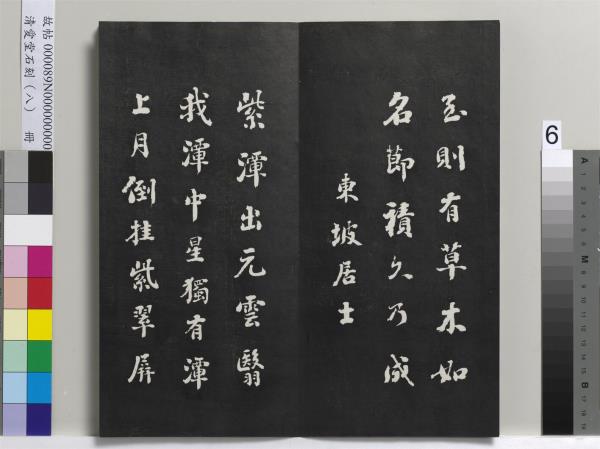 至則有草木如
名節積久乃成
東坡居士
紫潭出元雲翳
我潭中星獨有潭
上月倒挂紫翠屏
故帖 000089N000000000
清愛堂石刻（八） 冊
6
A
M
B